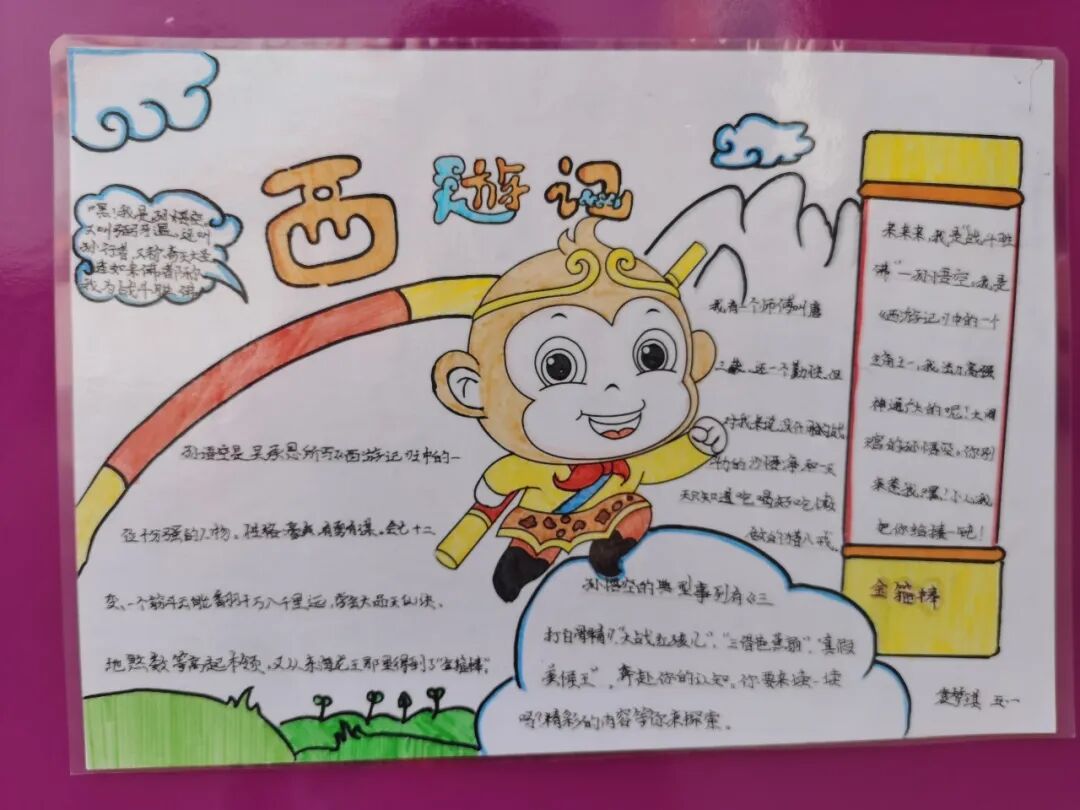 西遊记
"嘿!我是孙悟空,
又叫弼马温,还叫
孙行者,又称齐天大圣
连如来佛都称
我为战斗胜佛。
孙悟空是吴承恩所写《西游记》中的一
位十分强的人物。性格 有勇有谋。会七十二
变、一个筋斗云能翻十万八千里远,
地煞数等 起本领,又从东海龙王那里得到了"金箍棒"。
我有一个师傅叫唐
三藏、还一个勤快、但
对我来说没什么
的沙悟净和一天
天只知道吃喝好吃懒
做的猪八戒。
孙悟空的典型事列有《三
打白骨精》"大战红孩儿"、"三借芭蕉扇"、"真假
美猴王",奔赴你的认知。你要来读一读
吗?精彩的内容等你来探索。
来来来,我是"战斗胜
佛"一孙悟空,我是
《西游记》中的一个
主角之一,我法力高强
神通广大的呢!大闹
你别
来惹我,嘿!小心我
把你给揍一吨!
金箍棒
袁梦淇 五·一